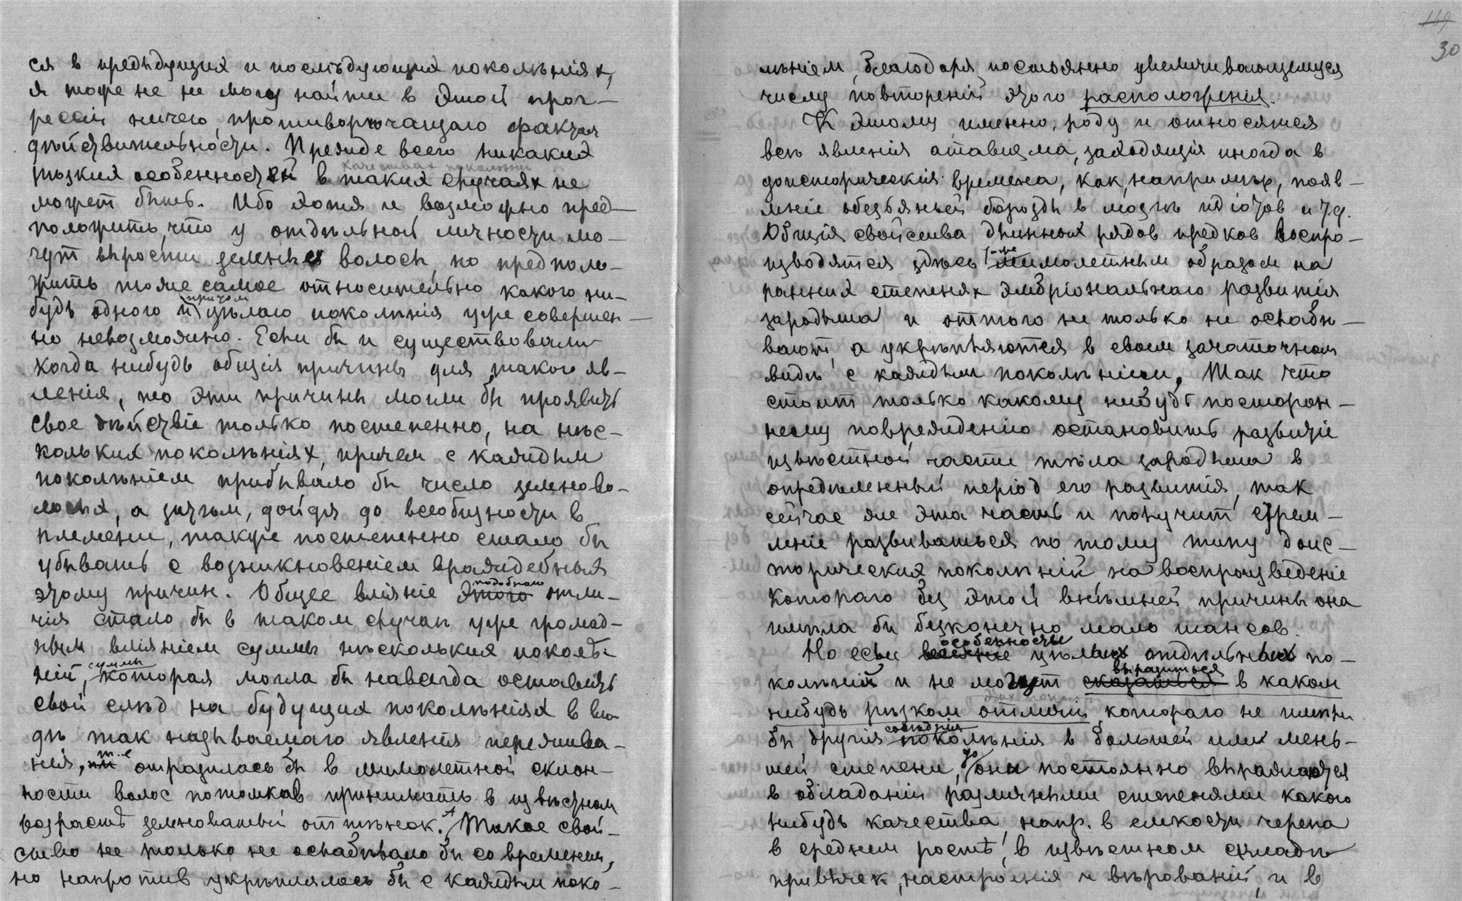 ся в предыдущих и последующих поколѣніях,
я тоже не не могу найти в этой прог-
рессіи ничего, противорѣчащаго фактам
дѣйствительности. Прежде всего никакия
рѣзкия особенности в таких случаях не
может быть. Ибо хотя и возможно пред-
положить, что у отдѣльной личности мо-
гут вырости зеленые волосы, но предполо-
жить тоже самое относительно какого ни-
будь одного причом цѣлаго поколѣнія уже совершен-
но невозможно. Если бы и существовали
когда нибудь общія причины для такого яв-
ленія, то эти причины могли бы проявить
свое дѣйствіе только постепенно, на нѣс-
кольких поколѣніях, причем с каждым
поколѣніем прибывало бы число зеленово-
лосых, а затѣм, дойдя до всеобщности в
племени, также постепенно стало бы
убывать с возникновеніем враждебных
этому причин. Общее вліяніе этого подобнаго отли-
чія стало бы в таком случаѣ уже громад-
ным вліянием суммы нѣскольких поколѣ-
ній, сумма которая могла бы навсегда оставить
свой слѣд на будущих поколѣніях в ви-
дѣ так называемаго явления пережива-
нія, т.е отразилась бы в мимолетной склон-
ности волос потомков принимать в извѣстном
возрастѣ зеленоватый оттѣнок. Такое свой-
ство не только не ослабѣвало бы со временем,
но напротив укрѣплялось бы с каждым поко-
119
30
лѣніем, благодаря постоянно увеличивающемуся
числу повтореній этого расположенія.
К этому именно роду и относятся
всѣ явленія атавизма, заходящія иногда в
доисторическія времена, как, напримѣр, появ-
леніе обезьяньей борозды в мозгѣ идіотов и т.д.
Общія свойства длинных рядов предков воспро-
изводятся здѣсь тоже мимолетным образом на
ранних степенях эмбріональнаго развитія
зародыша и оттого не только не ослабѣ-
вают а укрѣпляются в своем зачаточном
видѣ с каждым поколѣніем, так что
стоит только какому нибудь посторон-
нему поврежденію остановить развитіе
извѣстной части тѣла зародыша в
опредѣленный період его развитія, так
сейчас же эта часть и получит стрем-
леніе развиваться по тому типу доис-
торических поколѣній, на воспроизведеніе
котораго без этой внѣшней причины она
имѣла бы безконечно мало шансов.
Но если особенности цѣлых отдѣльных по-
колѣній и не могут сказаться выразиться в каком
нибудь рѣзком отличіи, котораго не имѣли
бы другія сосѣднія поколѣнія в большей или мень-
шей степени, то они постоянно выражаются
в обладаніи различными степенями какого
нибудь качества, напр. в емкости черепа
в среднем ростѣ, в извѣстном складѣ
привычек, настроенія и вѣрований, и в